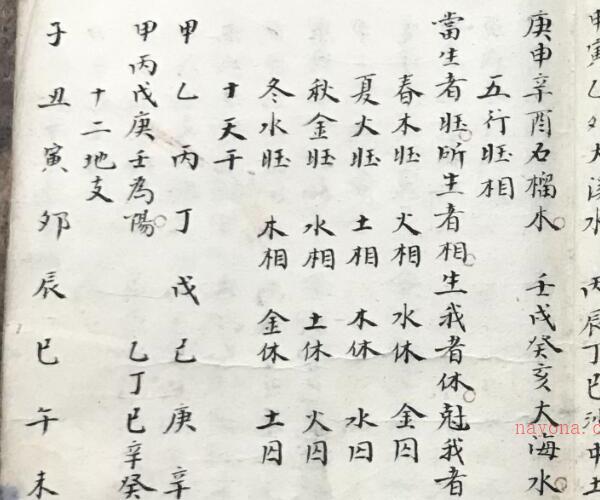 甲寅乙夘大溪水 丙辰丁巳沙中土
庚申辛酉石榴木 壬戌癸亥大海水
五行旺相
當生者旺所生者相生我者休尅我者
春木旺 火相 水休 金囚
夏火旺 土相 木休 水囚
秋金旺 水相 土休 火囚
冬水旺 木相 金休 土囚
十天干
甲乙丙丁戊己庚辛
甲丙戊庚壬為陽 乙丁己辛癸
十二地支
子丑寅夘辰巳午未
nayona.c